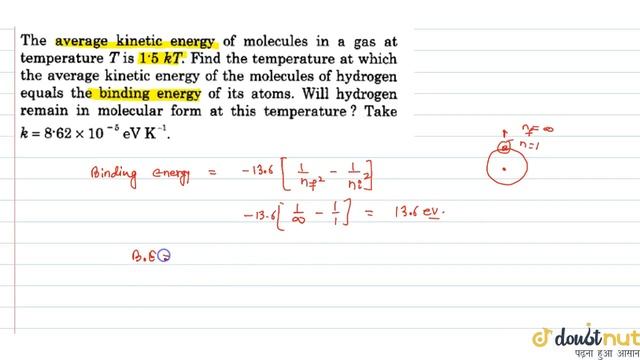 The average kinetic energy of molecules in a gas at
temperature T is 1·5 kT. Find the temperature at which
the average kinetic energy of the molecules of hydrogen
equals the binding energy of its atoms. Will hydrogen
remain in molecular form at this temperature ? Take
k = 8·62 × 10⁻⁵ eV K⁻¹.
n_f = ∞
n=1
Binding energy = -13.6 [1/n_f² - 1/n_i²]
-13.6 [1/∞ - 1/1] = 13.6 ev.
B.E =
doubtnut
पढ़ना हुआ आसान